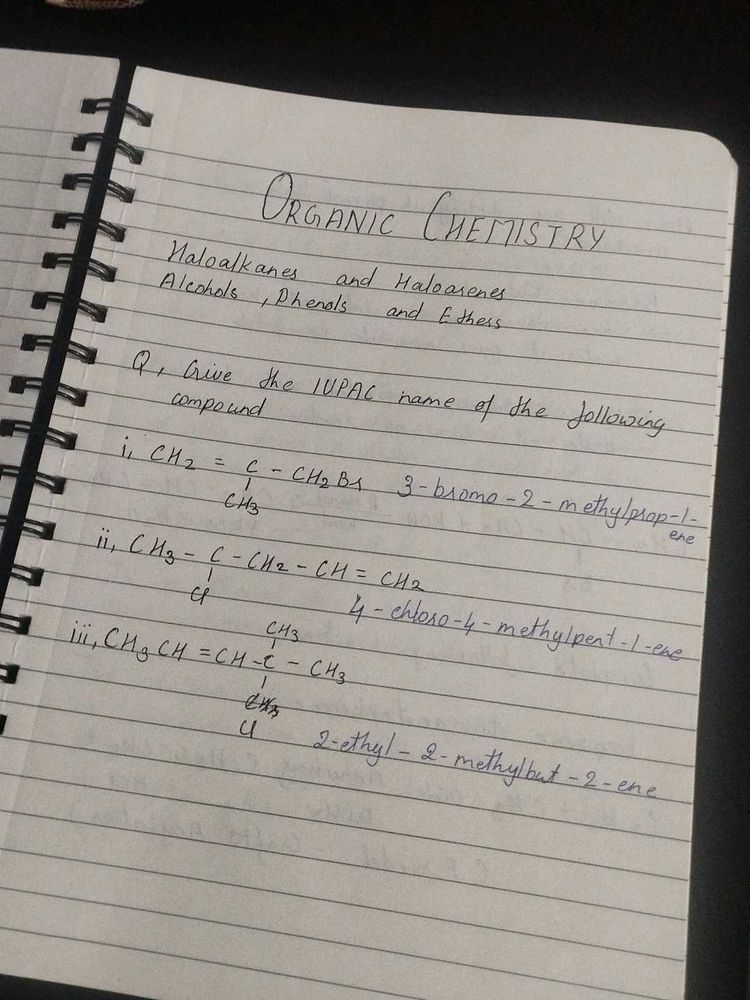 ORGANIC CHEMISTRY
Haloalkanes and Haloarenes
Alcohols, Phenols and Ethers
Q, Give the IUPAC name of the following
compound
i, CH2 = C - CH2Br 3-bromo-2-methylprop-1-
CH3 ene
ii, CH3 - C - CH2 - CH = CH2
Cl 4-chloro-4-methylpent-1-ene
CH3
iii, CH3CH = CH - C - CH3
CH3
Cl 2-ethyl-2-methylbut-2-ene